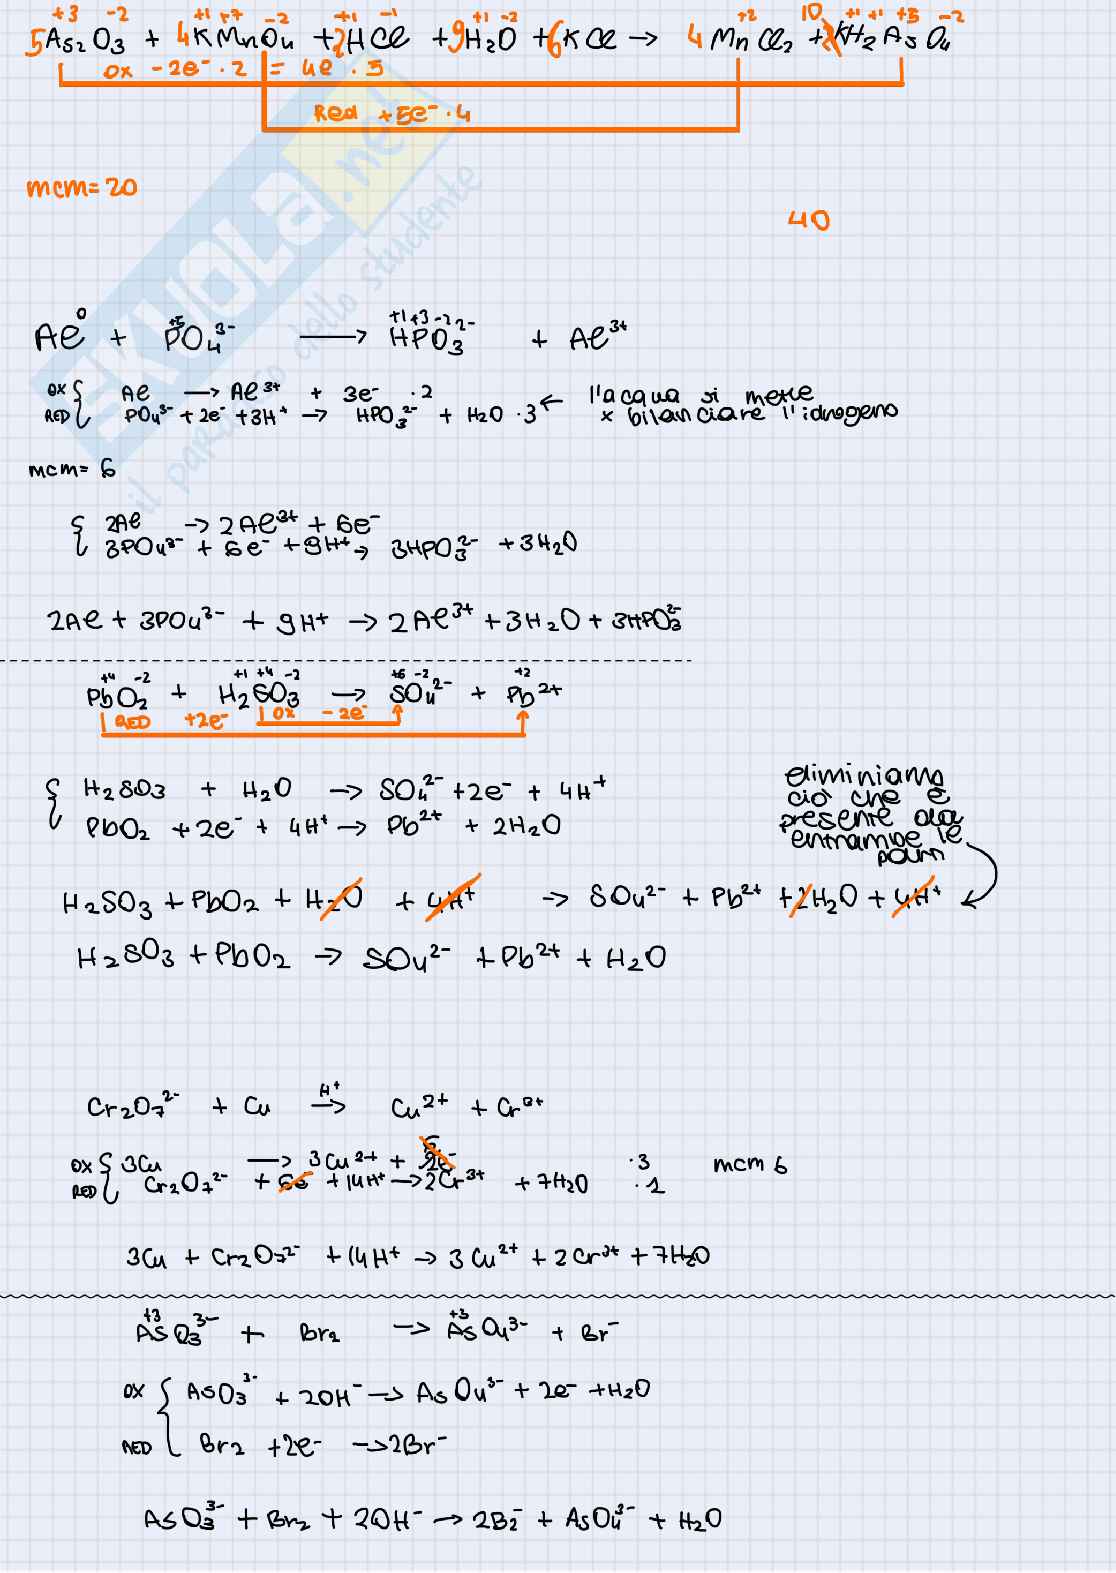 +3 -2 +1 +7 -2 +1 -1 +1 -2 +2 10 +1 +1 +5 -2
5As2O3 + 4KMnO4 + 2HCl + 9H2O + 6KCl → 4MnCl2 + KH2AsO4
ox -2e⁻ · 2 = 4e · 5
Red +5e⁻ · 4
mcm= 20
40
SKUOLA.net
il paradiso dello studente
0 +5 +1 +3 -2
Al + PO4³⁻ → HPO3²⁻ + Al³⁺
OX { Al → Al³⁺ + 3e⁻ · 2
RED { PO4³⁻ + 2e⁻ + 3H⁺ → HPO3²⁻ + H2O · 3 ← l'acqua si mette
x bilanciare l'idrogeno
mcm= 6
{ 2Al → 2Al³⁺ + 6e⁻
3PO4³⁻ + 6e⁻ + 9H⁺ → 3HPO3²⁻ + 3H2O
2Al + 3PO4³⁻ + 9H⁺ → 2Al³⁺ + 3H2O + 3HPO3²⁻
+4 -2 +1 +4 -2 +6 -2 +2
PbO2 + H2SO3 → SO4²⁻ + Pb²⁺
RED +2e⁻ ox -2e⁻
{ H2SO3 + H2O → SO4²⁻ + 2e⁻ + 4H⁺
PbO2 + 2e⁻ + 4H⁺ → Pb²⁺ + 2H2O
eliminiamo
ciò che è
presente da
entrambe le
parti
H2SO3 + PbO2 + H2O + 4H⁺ → SO4²⁻ + Pb²⁺ + 2H2O + 4H⁺
H2SO3 + PbO2 → SO4²⁻ + Pb²⁺ + H2O
Cr2O7²⁻ + Cu H⁺→ Cu²⁺ + Cr³⁺
OX { 3Cu → 3Cu²⁺ + 2e⁻ 6 · 3 mcm 6
RED { Cr2O7²⁻ + 6e⁻ + 14H⁺ → 2Cr³⁺ + 7H2O · 1
3Cu + Cr2O7²⁻ + 14H⁺ → 3Cu²⁺ + 2Cr³⁺ + 7H2O
+3 +3
AsO3³⁻ + Br2 → AsO4³⁻ + Br⁻
OX { AsO3³⁻ + 2OH⁻ → AsO4³⁻ + 2e⁻ + H2O
RED { Br2 + 2e⁻ → 2Br⁻
AsO3³⁻ + Br2 + 2OH⁻ → 2B2⁻ + AsO4³⁻ + H2O